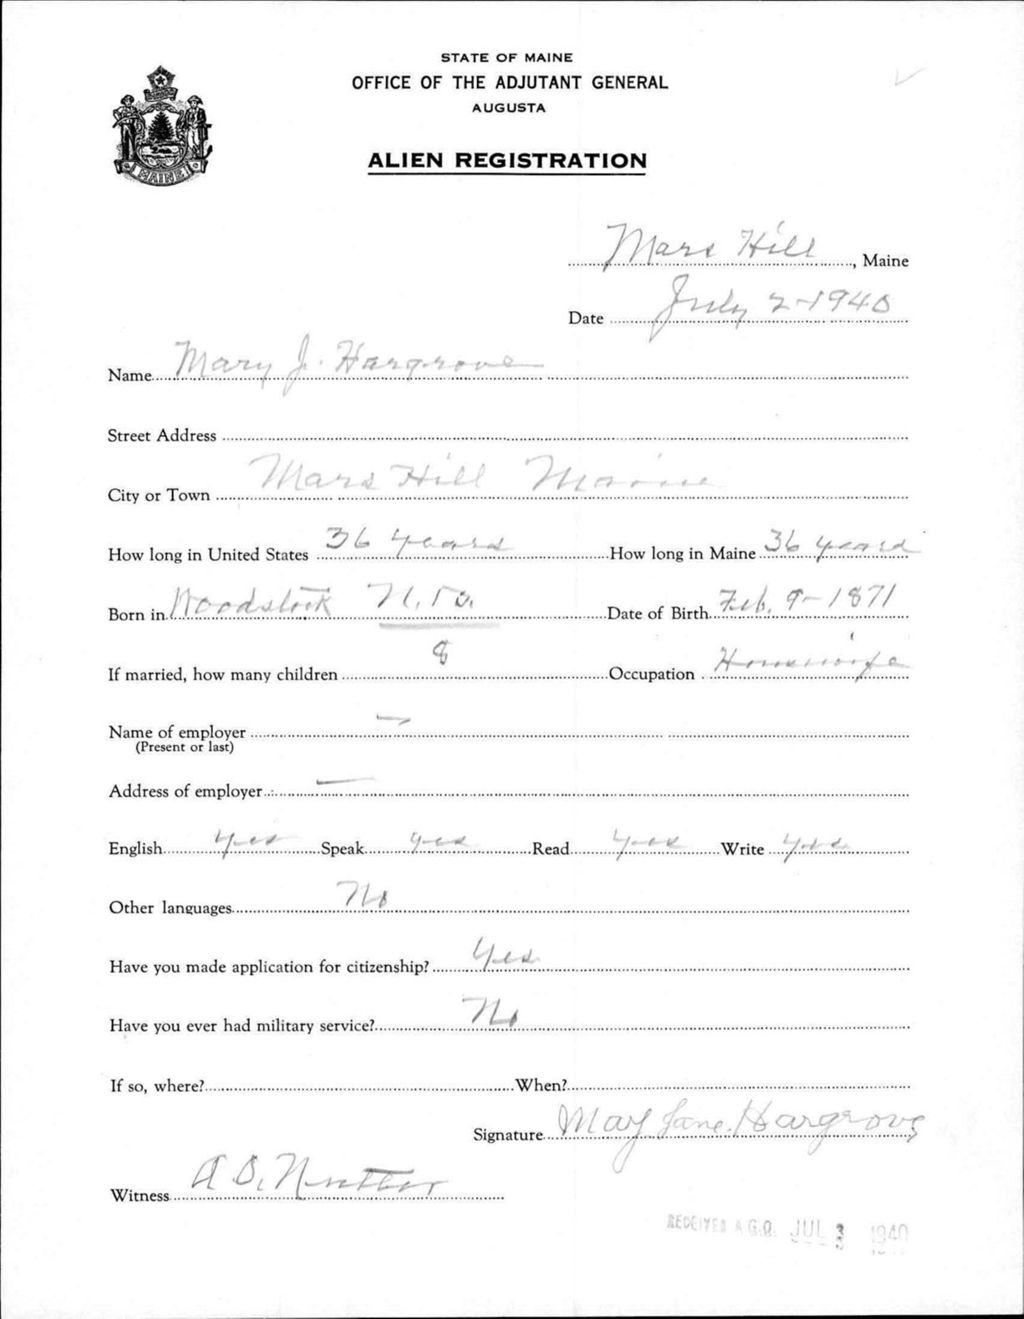 STATE OF MAINE
OFFICE OF THE ADJUTANT GENERAL
AUGUSTA
MAINE
ALIEN REGISTRATION
Mars Hill, Maine
Date July 2-1940
Name Mary J. Hargrove
Street Address
City or Town Mars Hill Maine
How long in United States 36 years How long in Maine 36 years
Born in Woodstock N.B. Date of Birth Feb. 9-1871
If married, how many children 8 Occupation Housewife
Name of employer —
(Present or last)
Address of employer —
English yes Speak yes Read yes Write yes
Other languages No
Have you made application for citizenship? Yes
Have you ever had military service? No
If so, where? When?
Signature May Jane Hargrove
Witness A.D. Nutter
RECEIVED A.G.O. JUL 3 1940